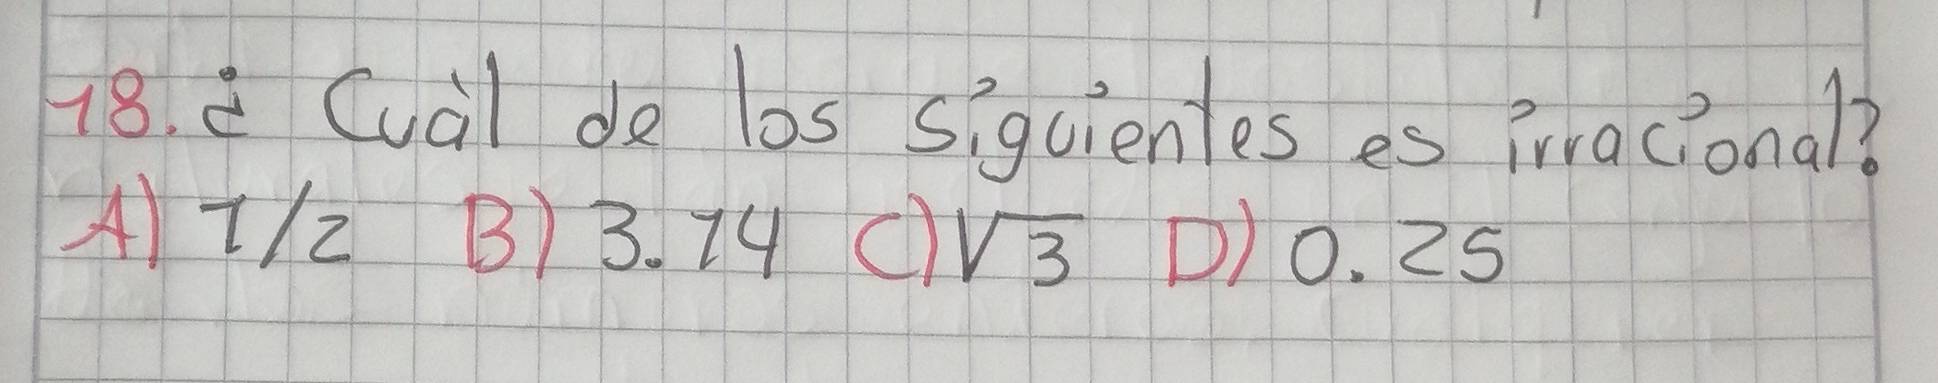 18. ¿ Cuàl de los siguientes es irracional?
A) 1/2 B) 3.14 C) √3 D) 0.25